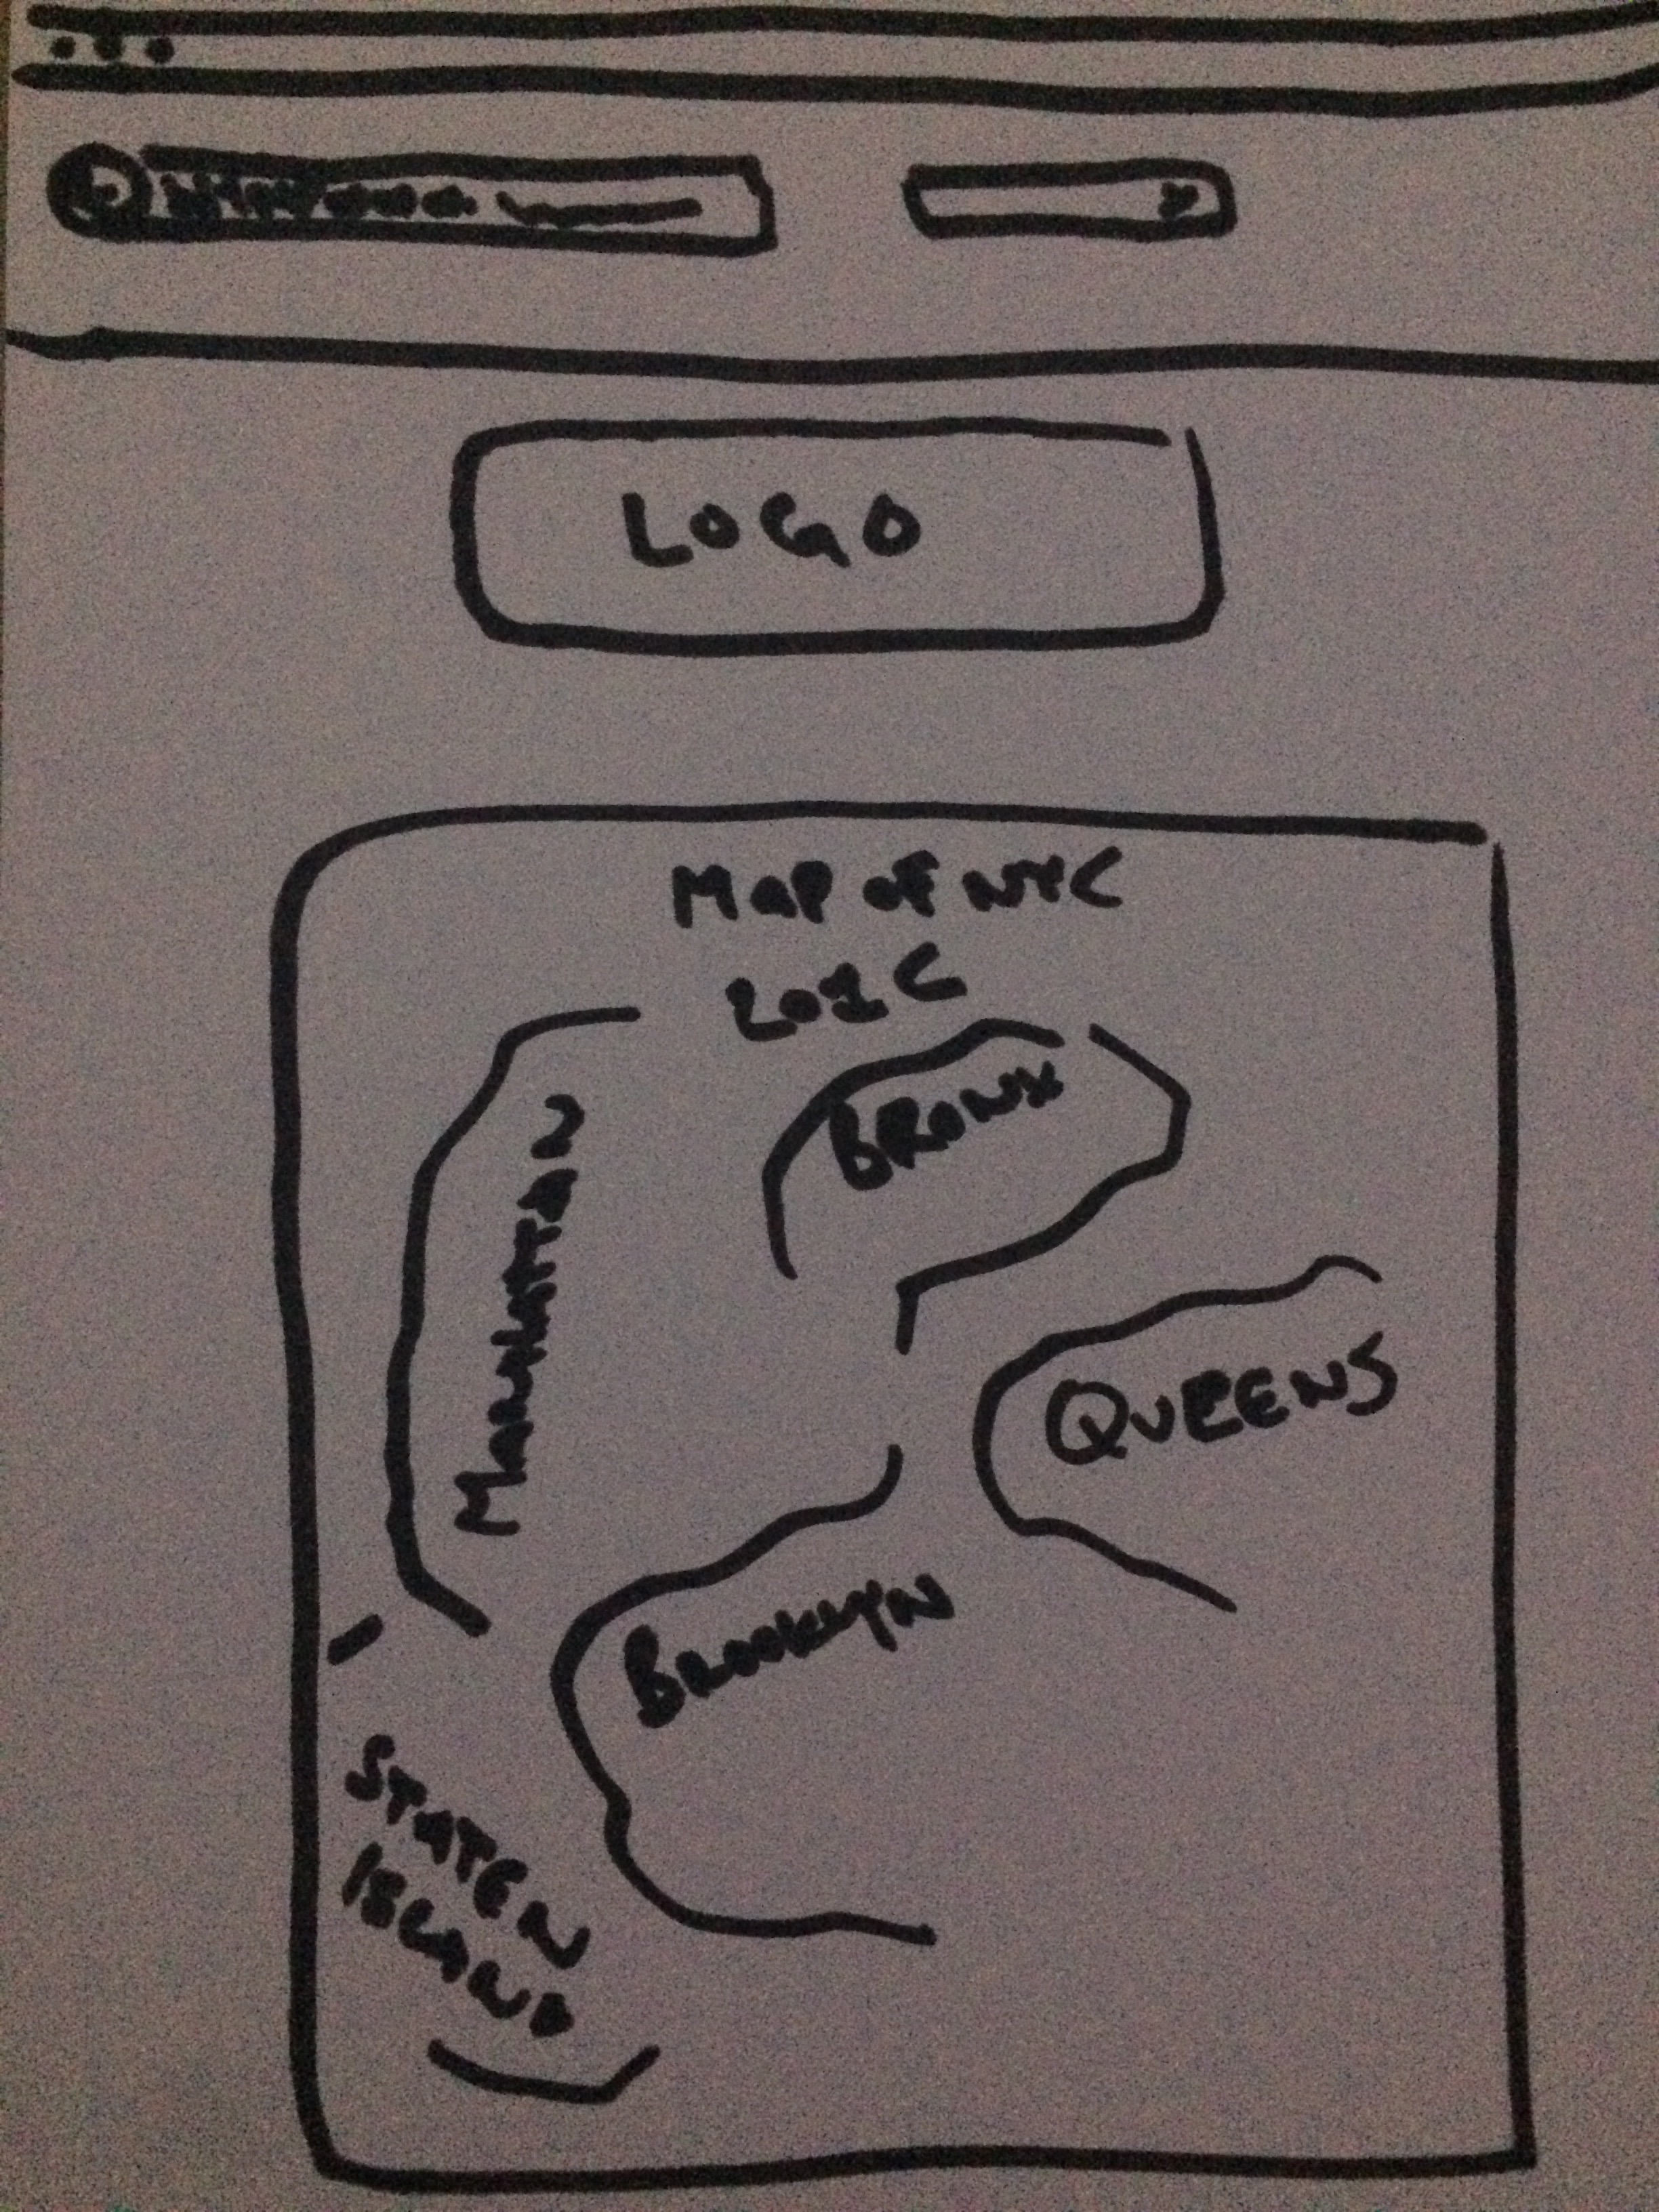 LOGO
MAP OF NYC
BRONX
MANHATTAN
QUEENS
BROOKLYN
STATEN
ISLAND